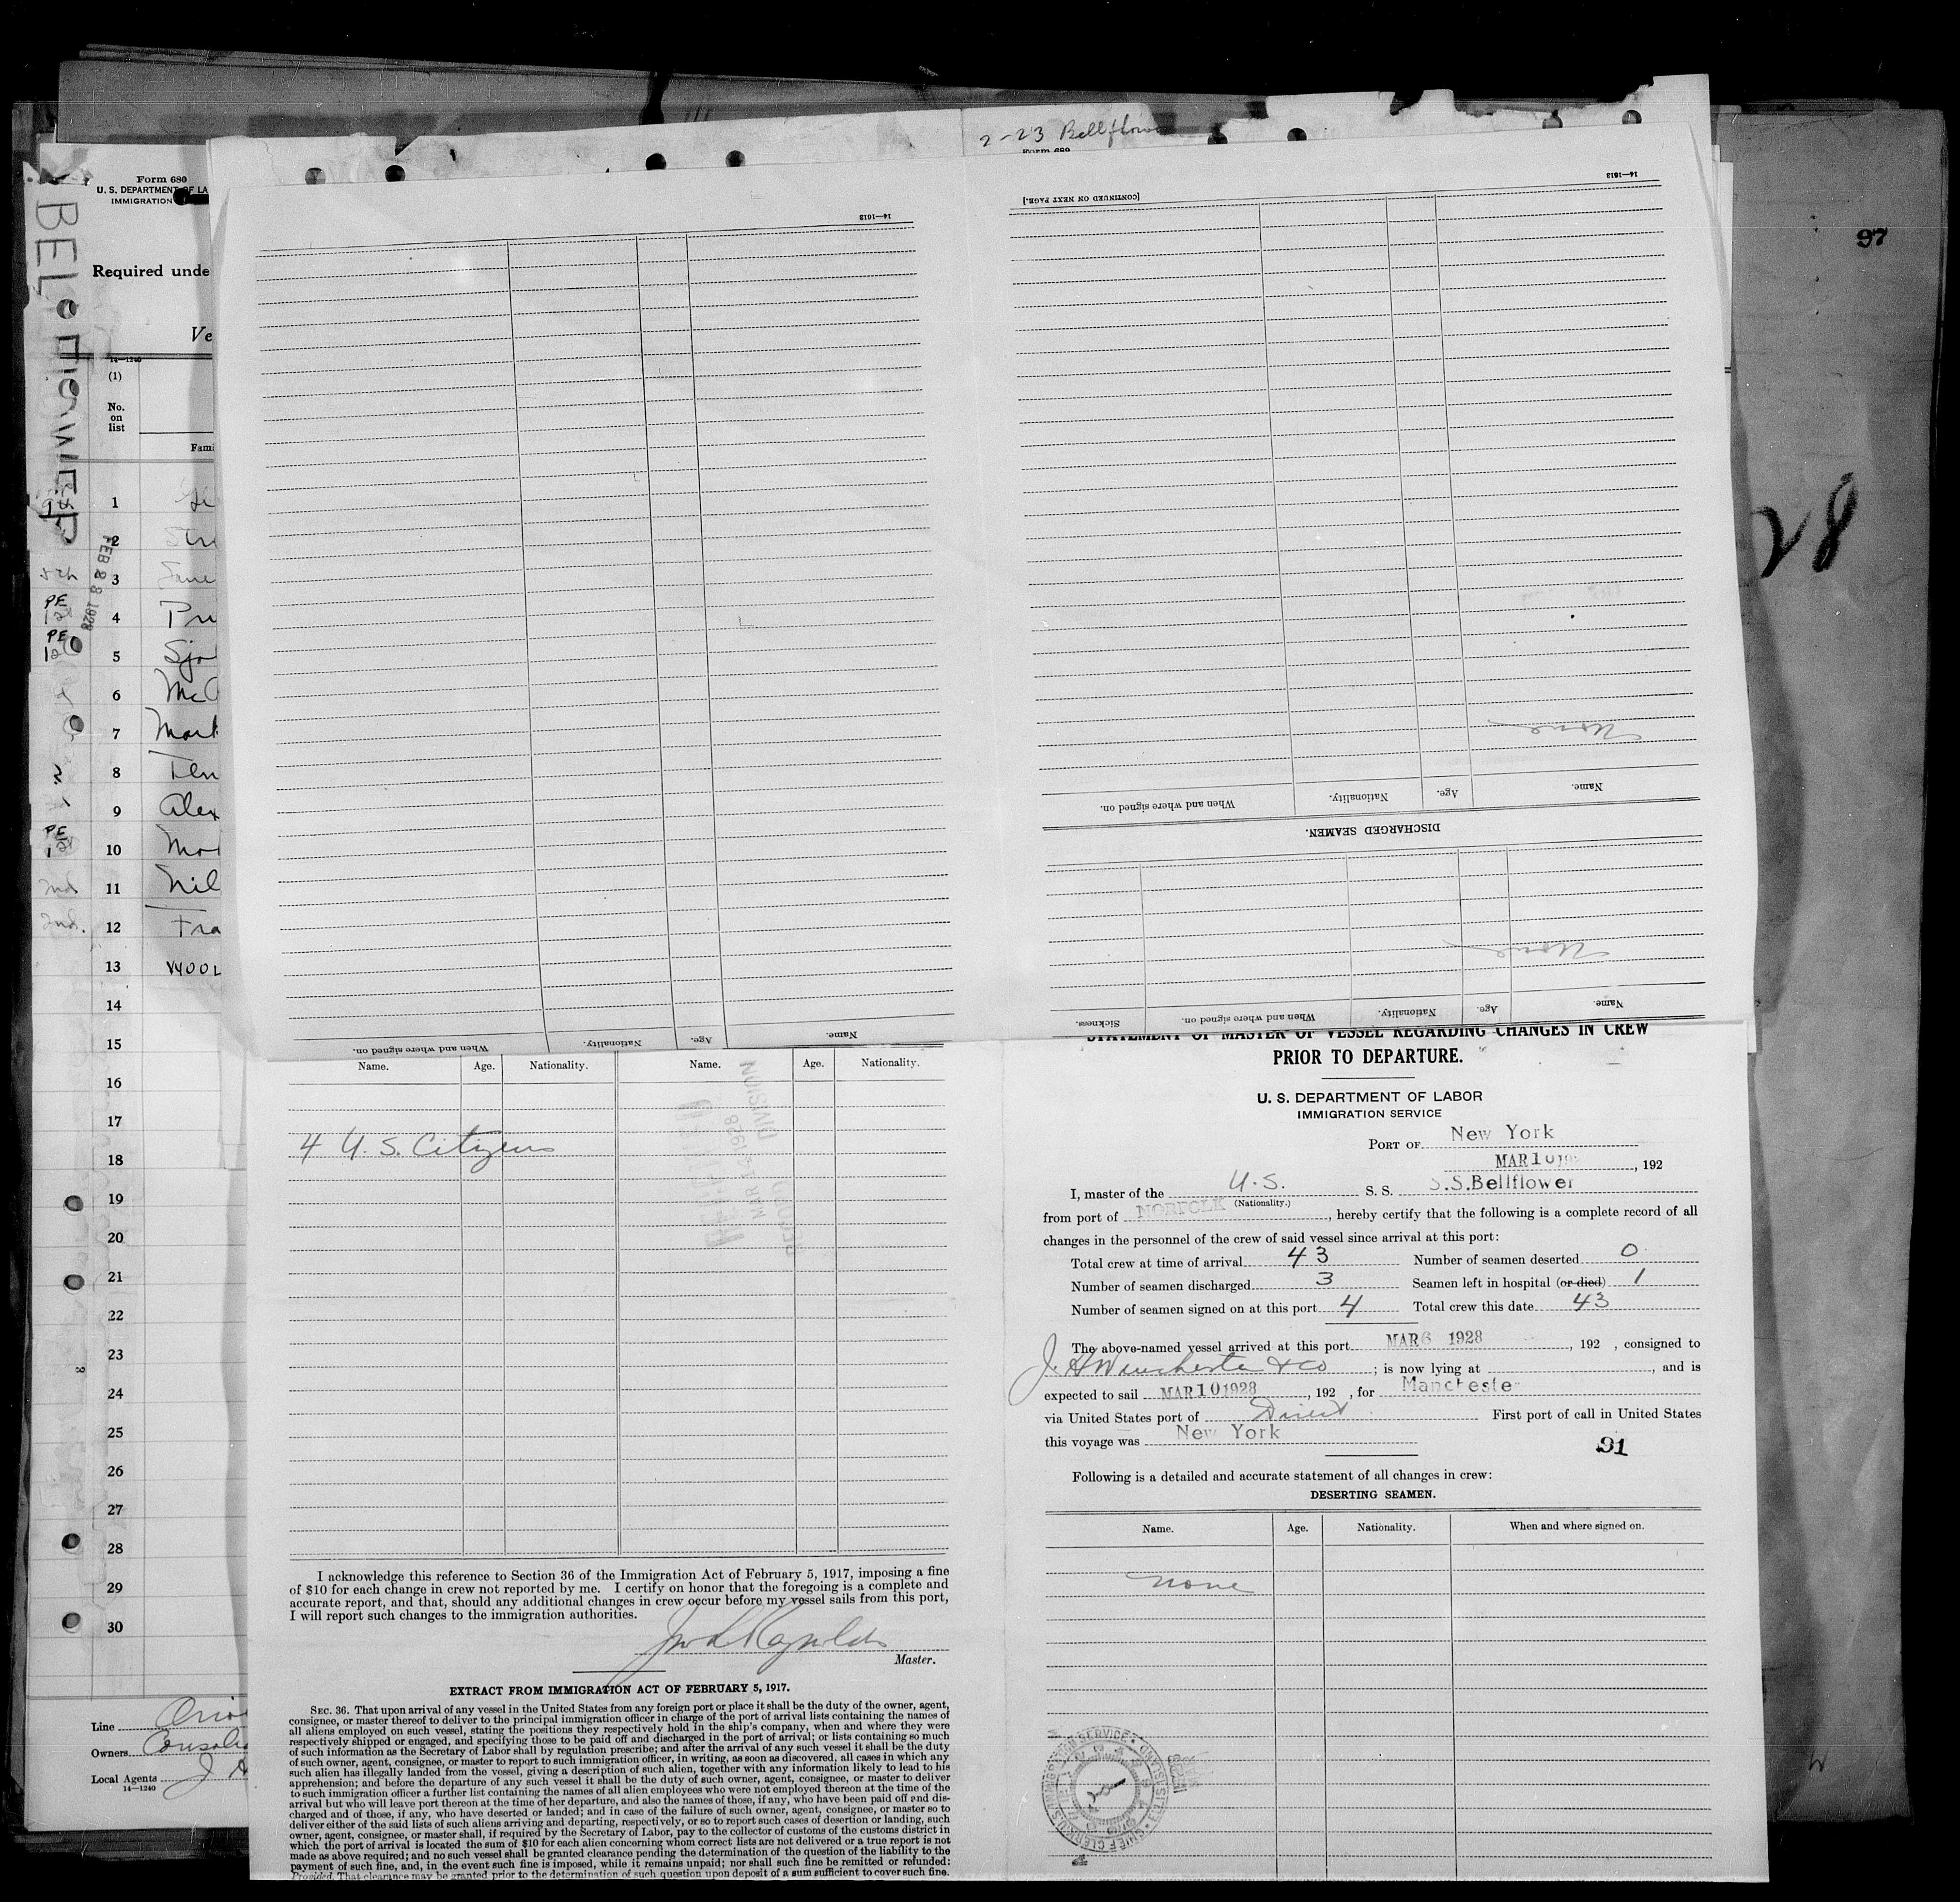 2-23 Bellflower
Form 689
97
28
Form 680
U. S. DEPARTMENT OF LA
IMMIGRATION
BELLFLOWER
Required unde
Ve
14—1240
(1)
No.
on
list
Fami
FEB 28 1928
1
2
3
PE
4 Pri
PE
5 Sjo
6 McC
7 Mart
8 Ten
9 Alex
PE
10 Mor
2nd 11 Nil
2nd. 12 Fra
13 WOOL
14
15
16
17
18
19
20
21
22
23
24
25
26
27
28
29
30
Line
Owners Consolid
Local Agents J H
14—1240
14—1613
When and where signed on.
Nationality.
Age.
Name.
14—1613
[CONTINUED ON NEXT PAGE.]
None
When and where signed on.
Nationality.
Age.
Name.
DISCHARGED SEAMEN.
None
Sickness.
When and where signed on.
Nationality.
Age.
Name.
Name. Age. Nationality. Name. Age. Nationality.
4 U. S. Citizens
I acknowledge this reference to Section 36 of the Immigration Act of February 5, 1917, imposing a fine
of $10 for each change in crew not reported by me. I certify on honor that the foregoing is a complete and
accurate report, and that, should any additional changes in crew occur before my vessel sails from this port,
I will report such changes to the immigration authorities.
Jno L Reynolds
Master.
EXTRACT FROM IMMIGRATION ACT OF FEBRUARY 5, 1917.
SEC. 36. That upon arrival of any vessel in the United States from any foreign port or place it shall be the duty of the owner, agent,
consignee, or master thereof to deliver to the principal immigration officer in charge of the port of arrival lists containing the names of
all aliens employed on such vessel, stating the positions they respectively hold in the ship's company, when and where they were
respectively shipped or engaged, and specifying those to be paid off and discharged in the port of arrival; or lists containing so much
of such information as the Secretary of Labor shall by regulation prescribe; and after the arrival of any such vessel it shall be the duty
of such owner, agent, consignee, or master to report to such immigration officer, in writing, as soon as discovered, all cases in which any
such alien has illegally landed from the vessel, giving a description of such alien, together with any information likely to lead to his
apprehension; and before the departure of any such vessel it shall be the duty of such owner, agent, consignee, or master to deliver
to such immigration officer a further list containing the names of all alien employees who were not employed thereon at the time of the
arrival but who will leave port thereon at the time of her departure, and also the names of those, if any, who have been paid off and dis-
charged and of those, if any, who have deserted or landed; and in case of the failure of such owner, agent, consignee, or master so to
deliver either of the said lists of such aliens arriving and departing, respectively, or so to report such cases of desertion or landing, such
owner, agent, consignee, or master shall, if required by the Secretary of Labor, pay to the collector of customs of the customs district in
which the port of arrival is located the sum of $10 for each alien concerning whom correct lists are not delivered or a true report is not
made as above required; and no such vessel shall be granted clearance pending the determination of the question of the liability to the
payment of such fine, and, in the event such fine is imposed, while it remains unpaid; nor shall such fine be remitted or refunded:
Provided, That clearance may be granted prior to the determination of such question upon deposit of a sum sufficient to cover such fine.
STATEMENT OF MASTER OF VESSEL REGARDING CHANGES IN CREW
PRIOR TO DEPARTURE.
U. S. DEPARTMENT OF LABOR
IMMIGRATION SERVICE
PORT OF New York
MAR 10 19 , 192
I, master of the U.S. S. S. S.S.Bellflower
(Nationality.)
from port of NORFOLK , hereby certify that the following is a complete record of all
changes in the personnel of the crew of said vessel since arrival at this port:
Total crew at time of arrival 43 Number of seamen deserted 0
Number of seamen discharged 3 Seamen left in hospital (or died) 1
Number of seamen signed on at this port 4 Total crew this date 43
The above-named vessel arrived at this port MAR 6 1928 , 192 , consigned to
J. H Winchester & Co ; is now lying at , and is
expected to sail MAR 10 1928 , 192 , for Manchester
via United States port of Direct First port of call in United States
this voyage was New York
91
Following is a detailed and accurate statement of all changes in crew:
DESERTING SEAMEN.
Name. Age. Nationality. When and where signed on.
none